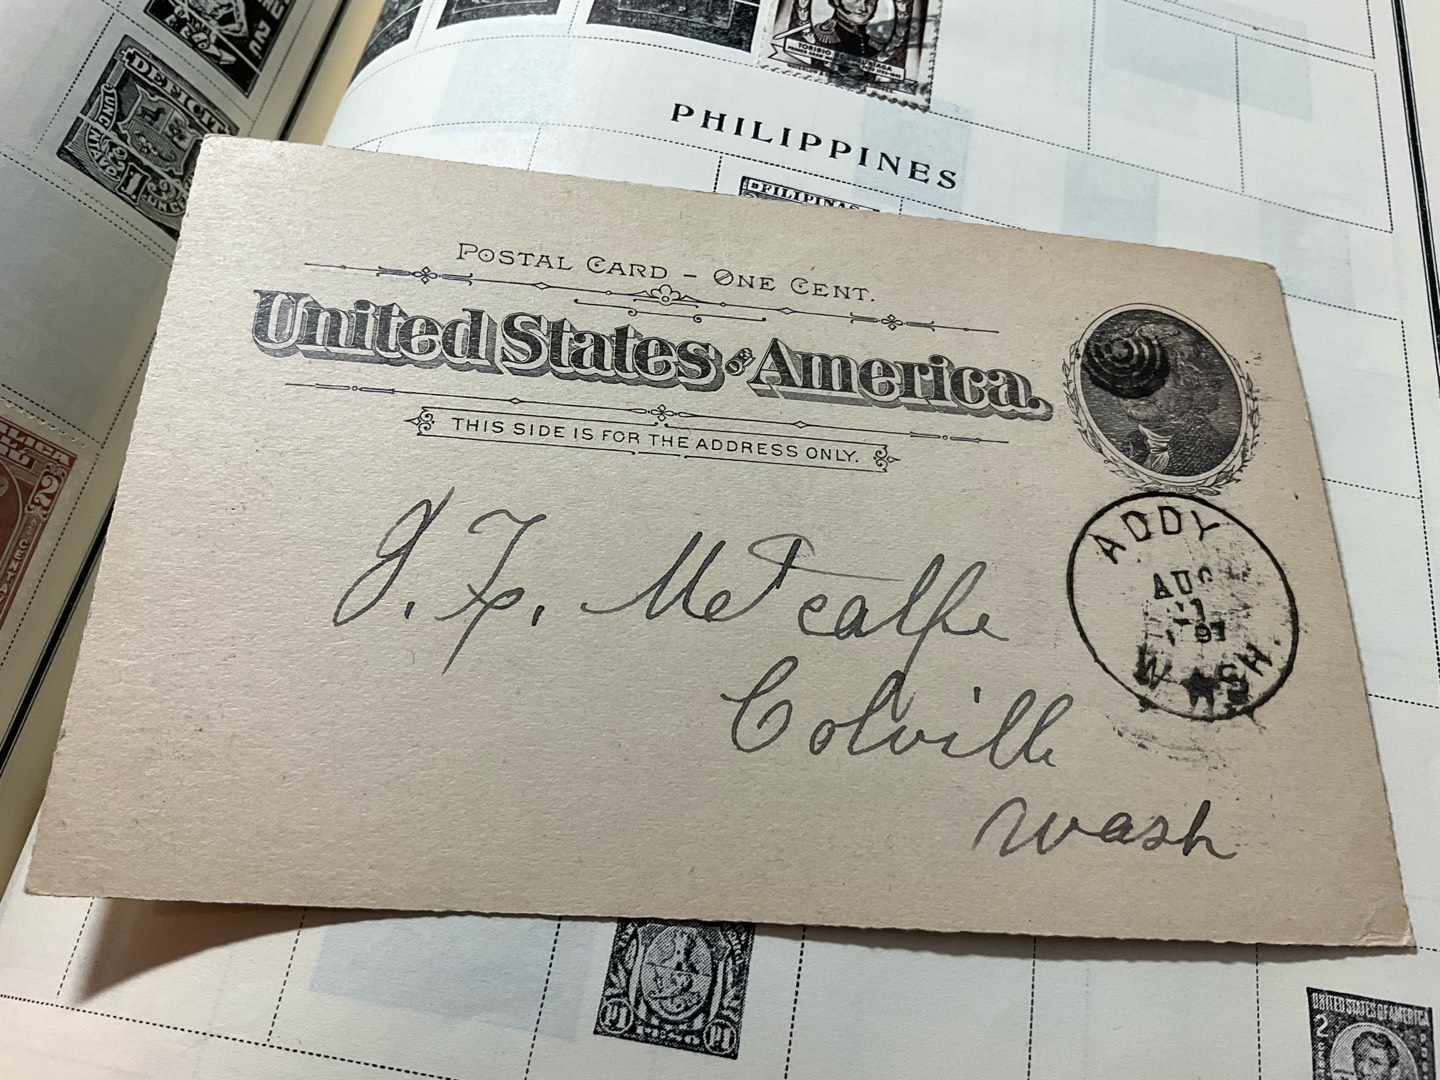 DEFICIT
PHILIPPINES
FILIPINAS
POSTAL CARD - ONE CENT.
United States of America.
THIS SIDE IS FOR THE ADDRESS ONLY.
J. F. Metcalfe
Colville
Wash
ADDY
AUG
97
WASH.
P1 P1
UNITED STATES OF AMERICA
2